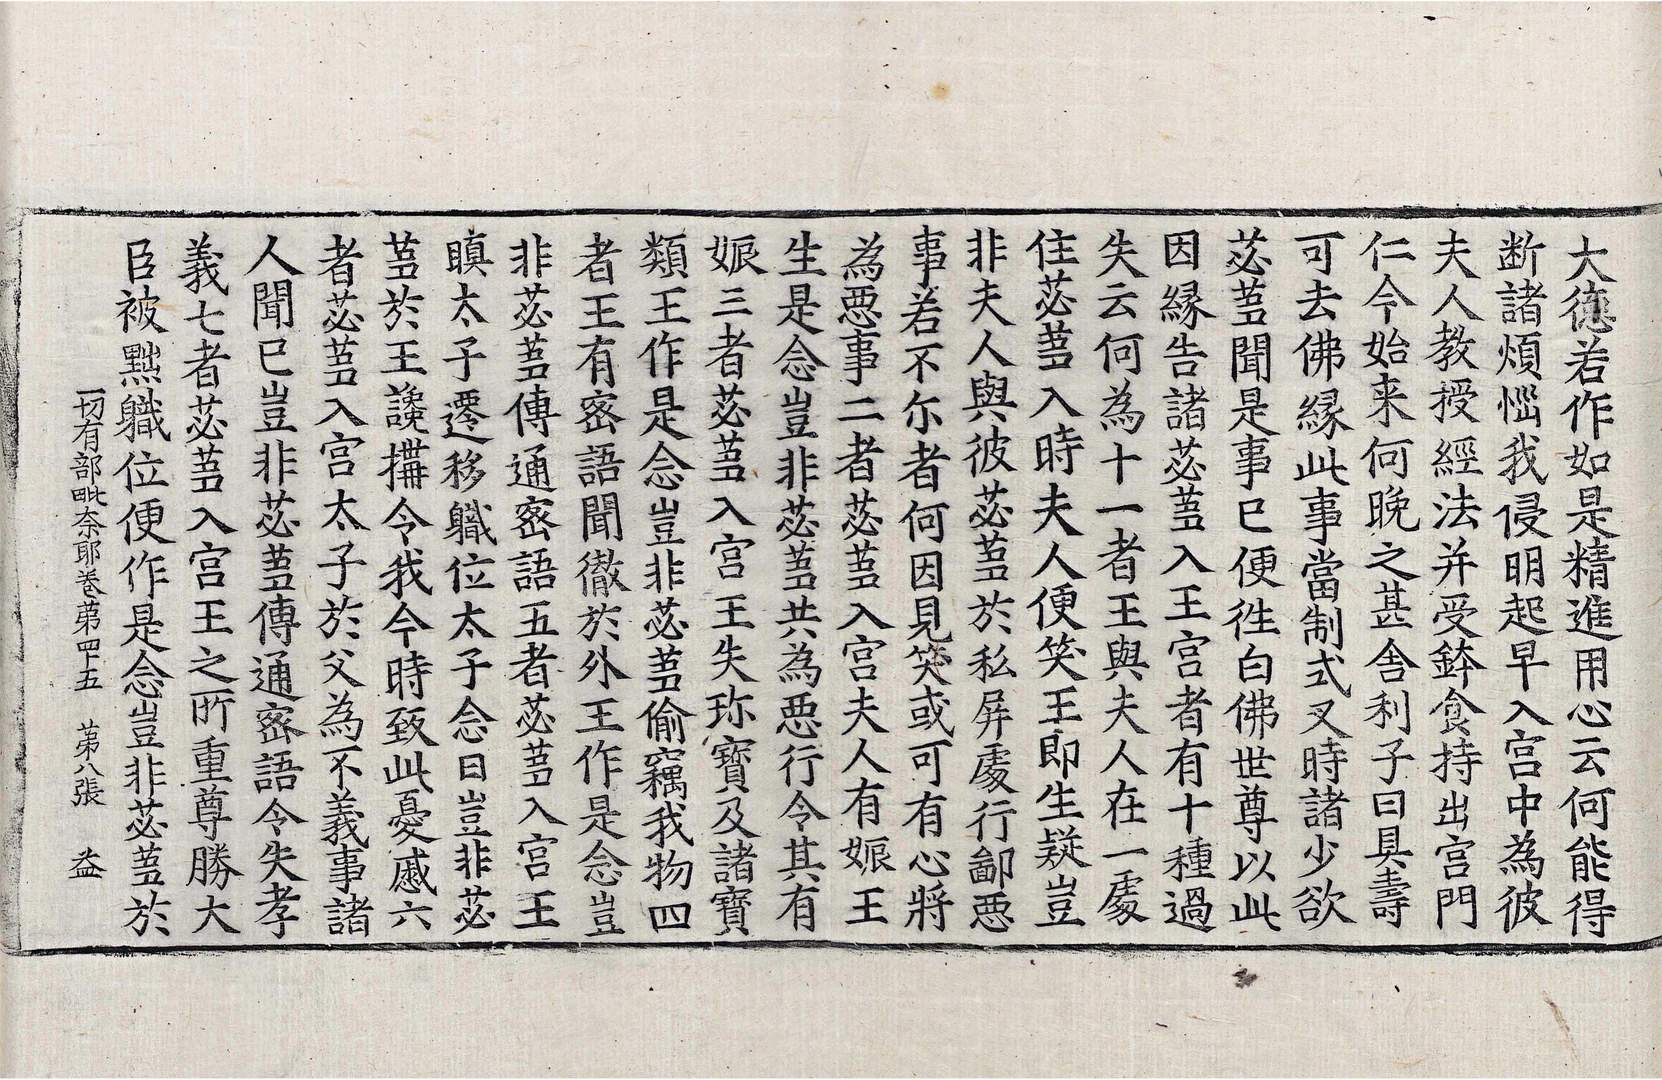 大德若作如是精進用心云何能得
断諸煩惱我侵明起早入宫中為彼
夫人教授經法并受鉢食持出宫門
仁今始来何晚之甚舍利子曰具壽
可去佛縁此事當制式叉時諸少欲
苾蒭聞是事已便往白佛世尊以此
因縁告諸苾蒭入王宫者有十種過
失云何為十一者王與夫人在一處
住苾蒭入時夫人便笑王即生疑豈
非夫人與彼苾蒭於私屏處行鄙惡
事若不尔者何因見笑或可有心將
為惡事二者苾蒭入宫夫人有娠王
生是念豈非苾蒭共為惡行令其有
娠三者苾蒭入宫王失珎寶及諸寶
類王作是念豈非苾蒭偷竊我物四
者王有密語聞徹於外王作是念豈
非苾蒭傳通密語五者苾蒭入宫王
瞋太子遷移軄位太子念曰豈非苾
蒭於王讒搆令我今時致此憂慼六
者苾蒭入宫太子於父為不義事諸
人聞已豈非苾蒭傳通密語令失孝
義七者苾蒭入宫王之所重尊勝大
臣被黜軄位便作是念豈非苾蒭於
一切有部毗奈耶卷第四十五　第八張　益